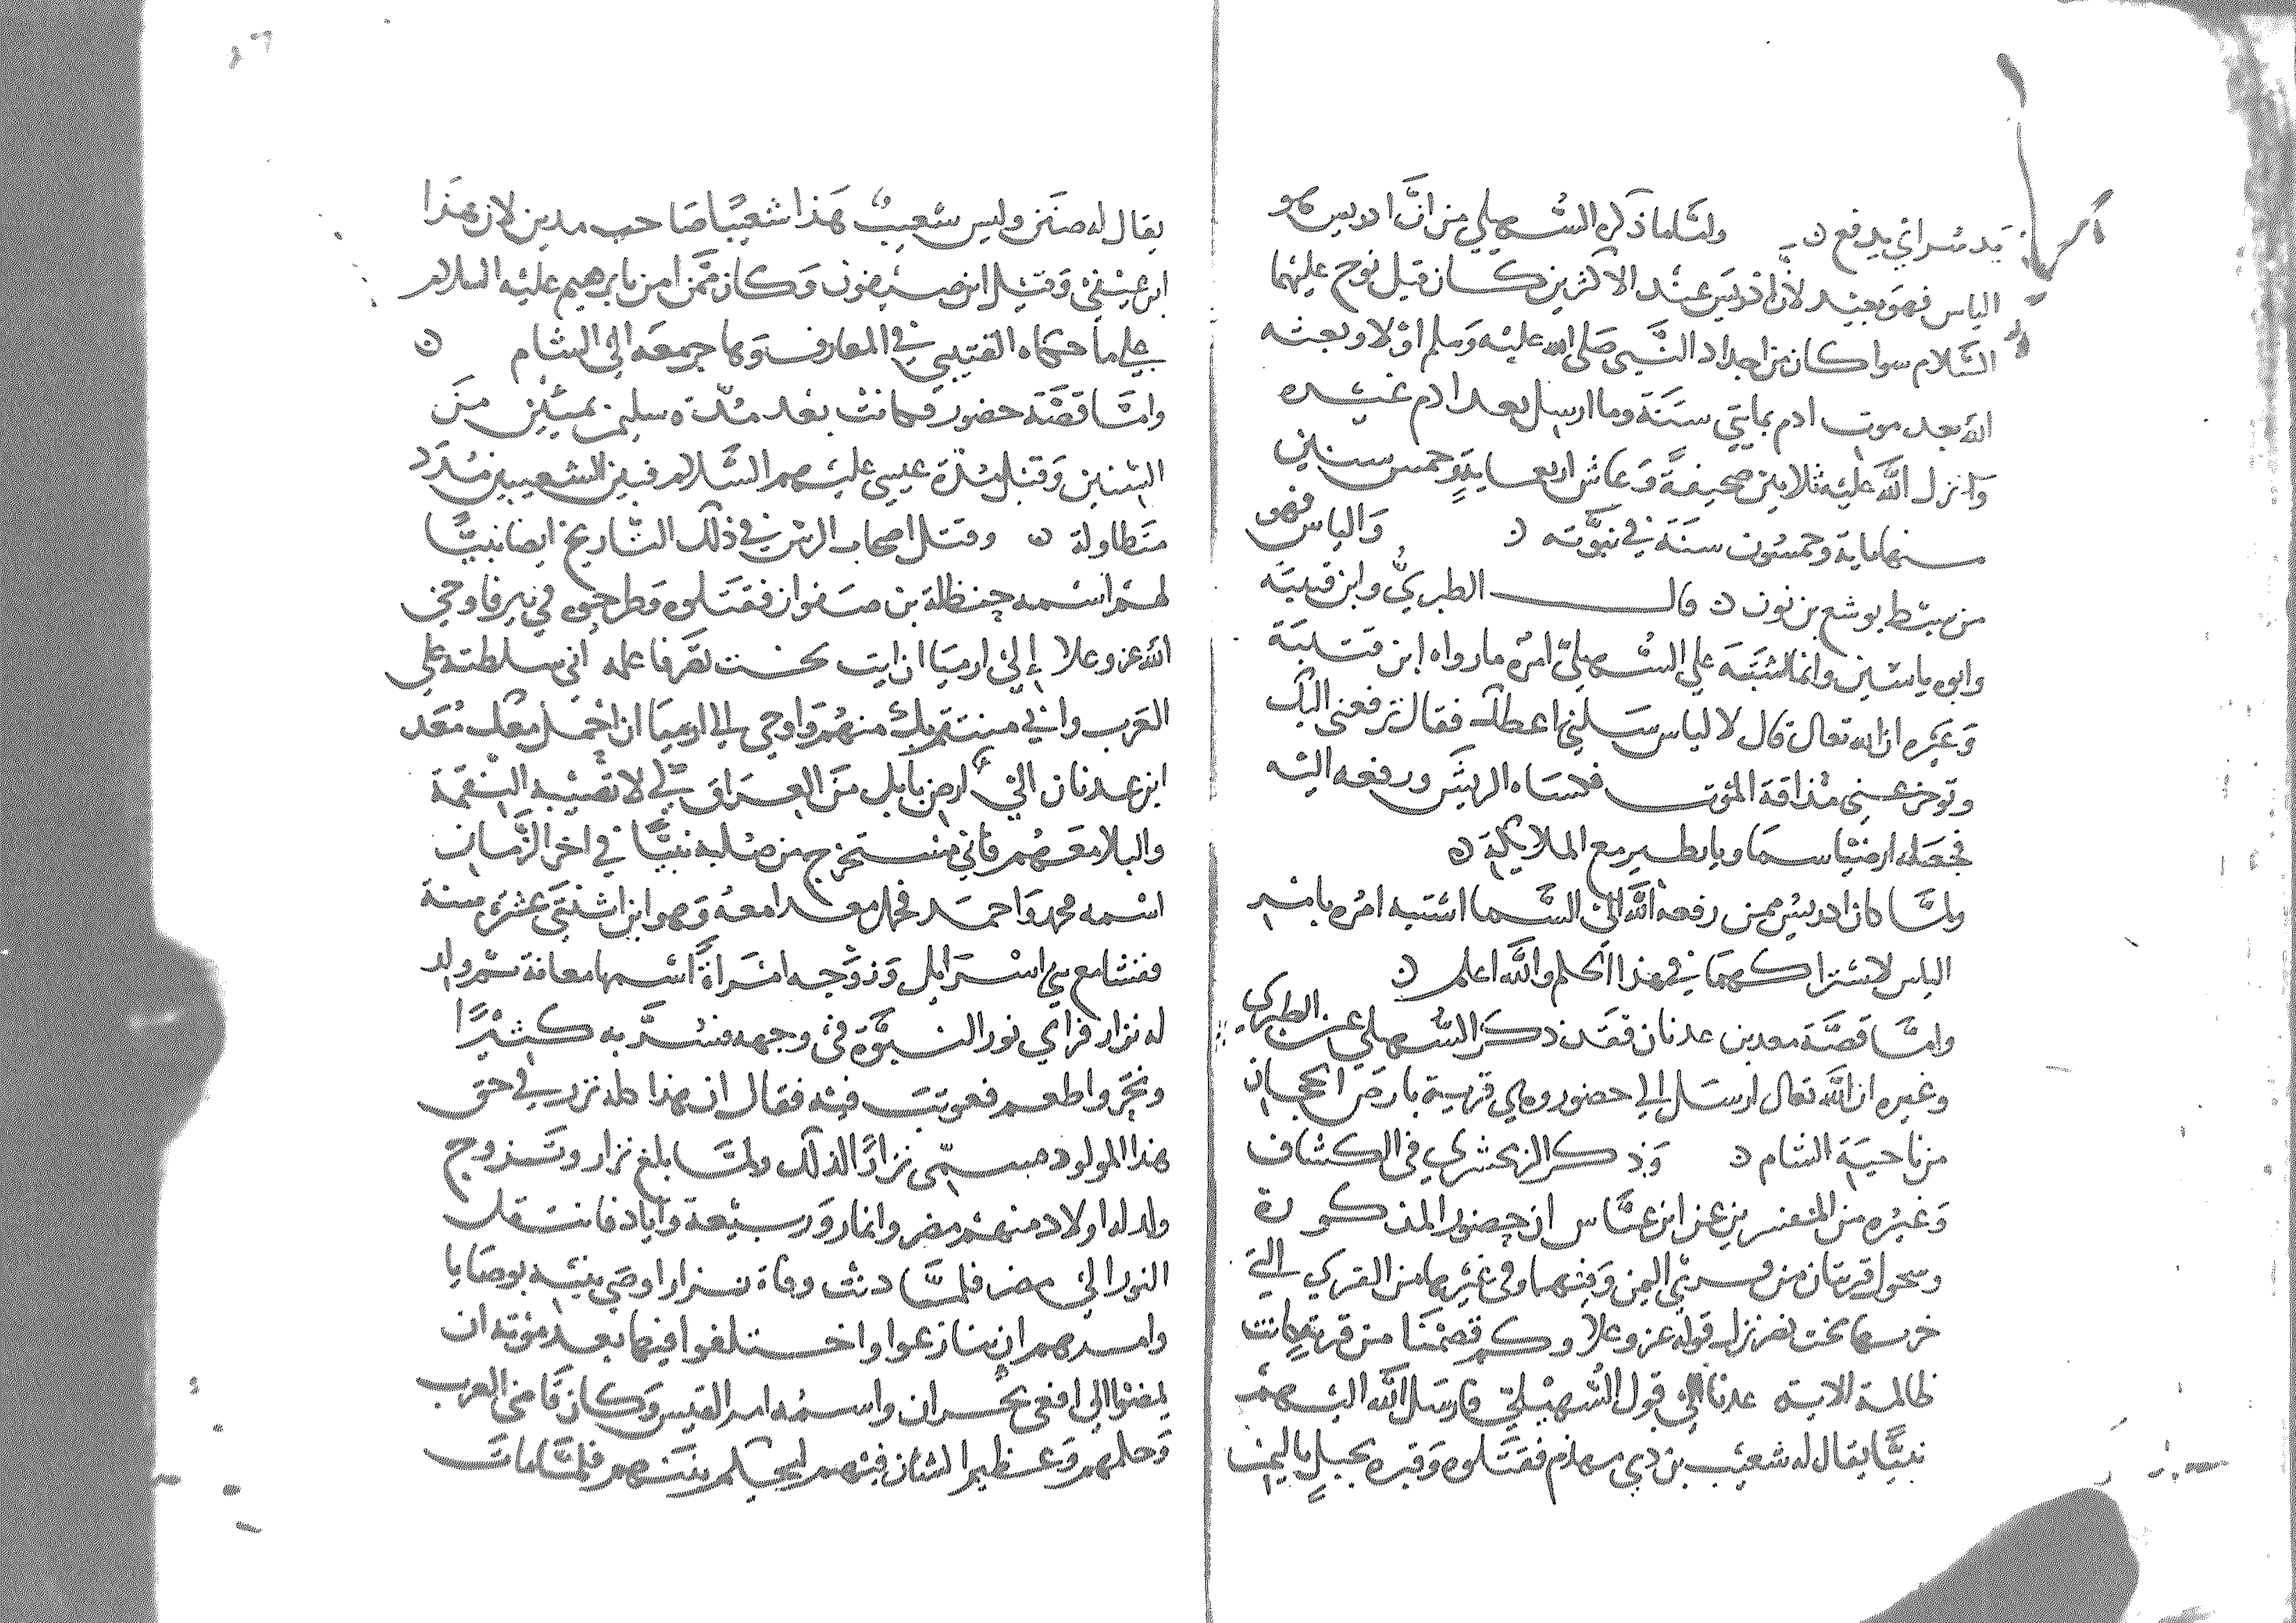 يدسراي يدفع ن ولما ما ذكره السهيلي من ان ادريس هو
الياس فهو بعيد لان ادريس عند الاكثرين كان قبل نوح عليهما
السلام سوا كان من اجداد النبي صلى الله عليه وسلم اولا وبعثه
الله بعد موت ادم بمايتي سنة وما ارسل بعد ادم غيره
وانزل الله عليه ثلاثين صحيفة وعاش اربعماية وخمس سنين
منها ماية وخمسون سنة في نبوته ن والياس فهو
من سبط يوشع بن نون ن قال الطبري وابن قتيبة
وابوه ياسين وانما اشتبه علي السهيلي امره ما رواه ابن قتيبة
وغيره ان الله تعالى قال لالياس سلني اعطك فقال ترفعني اليك
وتوخر عني مذاقة الموت فكساه الريش ورفعه اليه
فجعله ارضيا سماويا يطير مع الملايكة ن
ولما كان ادريس ممن رفعه الله الى السما اشتبه امره بامر
الياس لاشتراكهما في هذا الحكم والله اعلم ن
واما قصة معد بن عدنان فقد ذكر السهيلي عن الطبري
وغيره ان الله تعالى ارسل الي حضور وهي قرية بارض الحجاز
من ناحية الشام ن وذكر الزمخشري في الكشاف
وغيره من المفسرين عن ابن عباس ان حضور المذكورة
وسحول قريتان من قرى اليمن وفيهما وفي غيرهما من القري التي
خربها بخت نصر نزل قوله عز وعلا وكم قصمنا من قرية كانت
ظالمة الاية عدنا الي قول السهيلي فارسل الله اليهم
نبيا يقال له شعيب بن ذي مهذم فقتلوه وقبره بجبل باليمن
يقال له صنن وليس شعيب هذا شعيبا صاحب مدين لان هذا
ابن عيفي وقيل ابن صيفون وكان ممن امن بابرهيم عليه السلام
علي ما حكاه القتيبي في المعارف وهاجر معه الى الشام ن
واما قصة حضور فكانت بعد مدة سليمن بمئين من
السنين وقبل مدة عيسى عليهم السلام فبين الشعيبين مدد
متطاولة ن وقتل اصحاب الرس في ذلك التاريخ ايضا نبيا
لهم اسمه حنظلة بن صفوان فقتلوه وطرحوه في بير فاوحى
الله عز وعلا إلى ارميا ان ايت بخت نصر فاعلمه اني سلطته علي
العرب واني منتقم بك منهم واوحى الي ارميا ان احمل معك معد
ابن عدنان الى ارض بابل من العراق كي لا تصيبه النقمة
والبلا معهم فاني مستخرج من صلبه نبيا في اخر الزمان
اسمه محمد واحمد فحمل معدا معه وهو ابن اثنتي عشرة سنة
فنشا مع بني اسرايل وزوجه امراة اسمها معانة ثم ولد
له نزار فراي نور النبوة في وجهه فسر به كثيرا
ونحر واطعم فعوتب فيه فقال ان هذا كله نزر في حق
هذا المولود فسمي نزارا لذلك ولما بلغ نزار وتزوج
ولد له اولاد منهم مضر وانمار وربيعة واياد فانتقل
النور الى مضر فلما دنت وفاة نزار اوصي بنيه بوصايا
وامرهم ان تنازعوا واختلفوا فيها بعد موته ان
يمضوا الي افعى بنجران واسمه امر القيس وكان قاضي العرب
وحكمهم وعظيم الشان فيهم ليحكم بينهم فلما مات